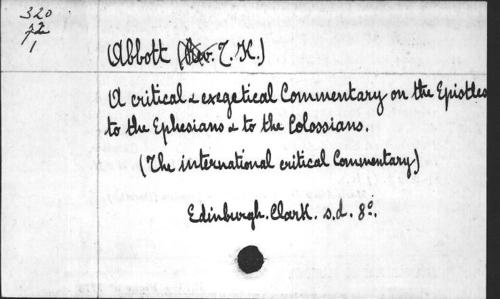 320
p2
1
Abbott (Rev. T. K.)
A critical & exegetical Commentary on the Epistles
to the Ephesians & to the Colossians.
(The international critical Commentary)
Edinburgh. Clark. s.d. 8º.